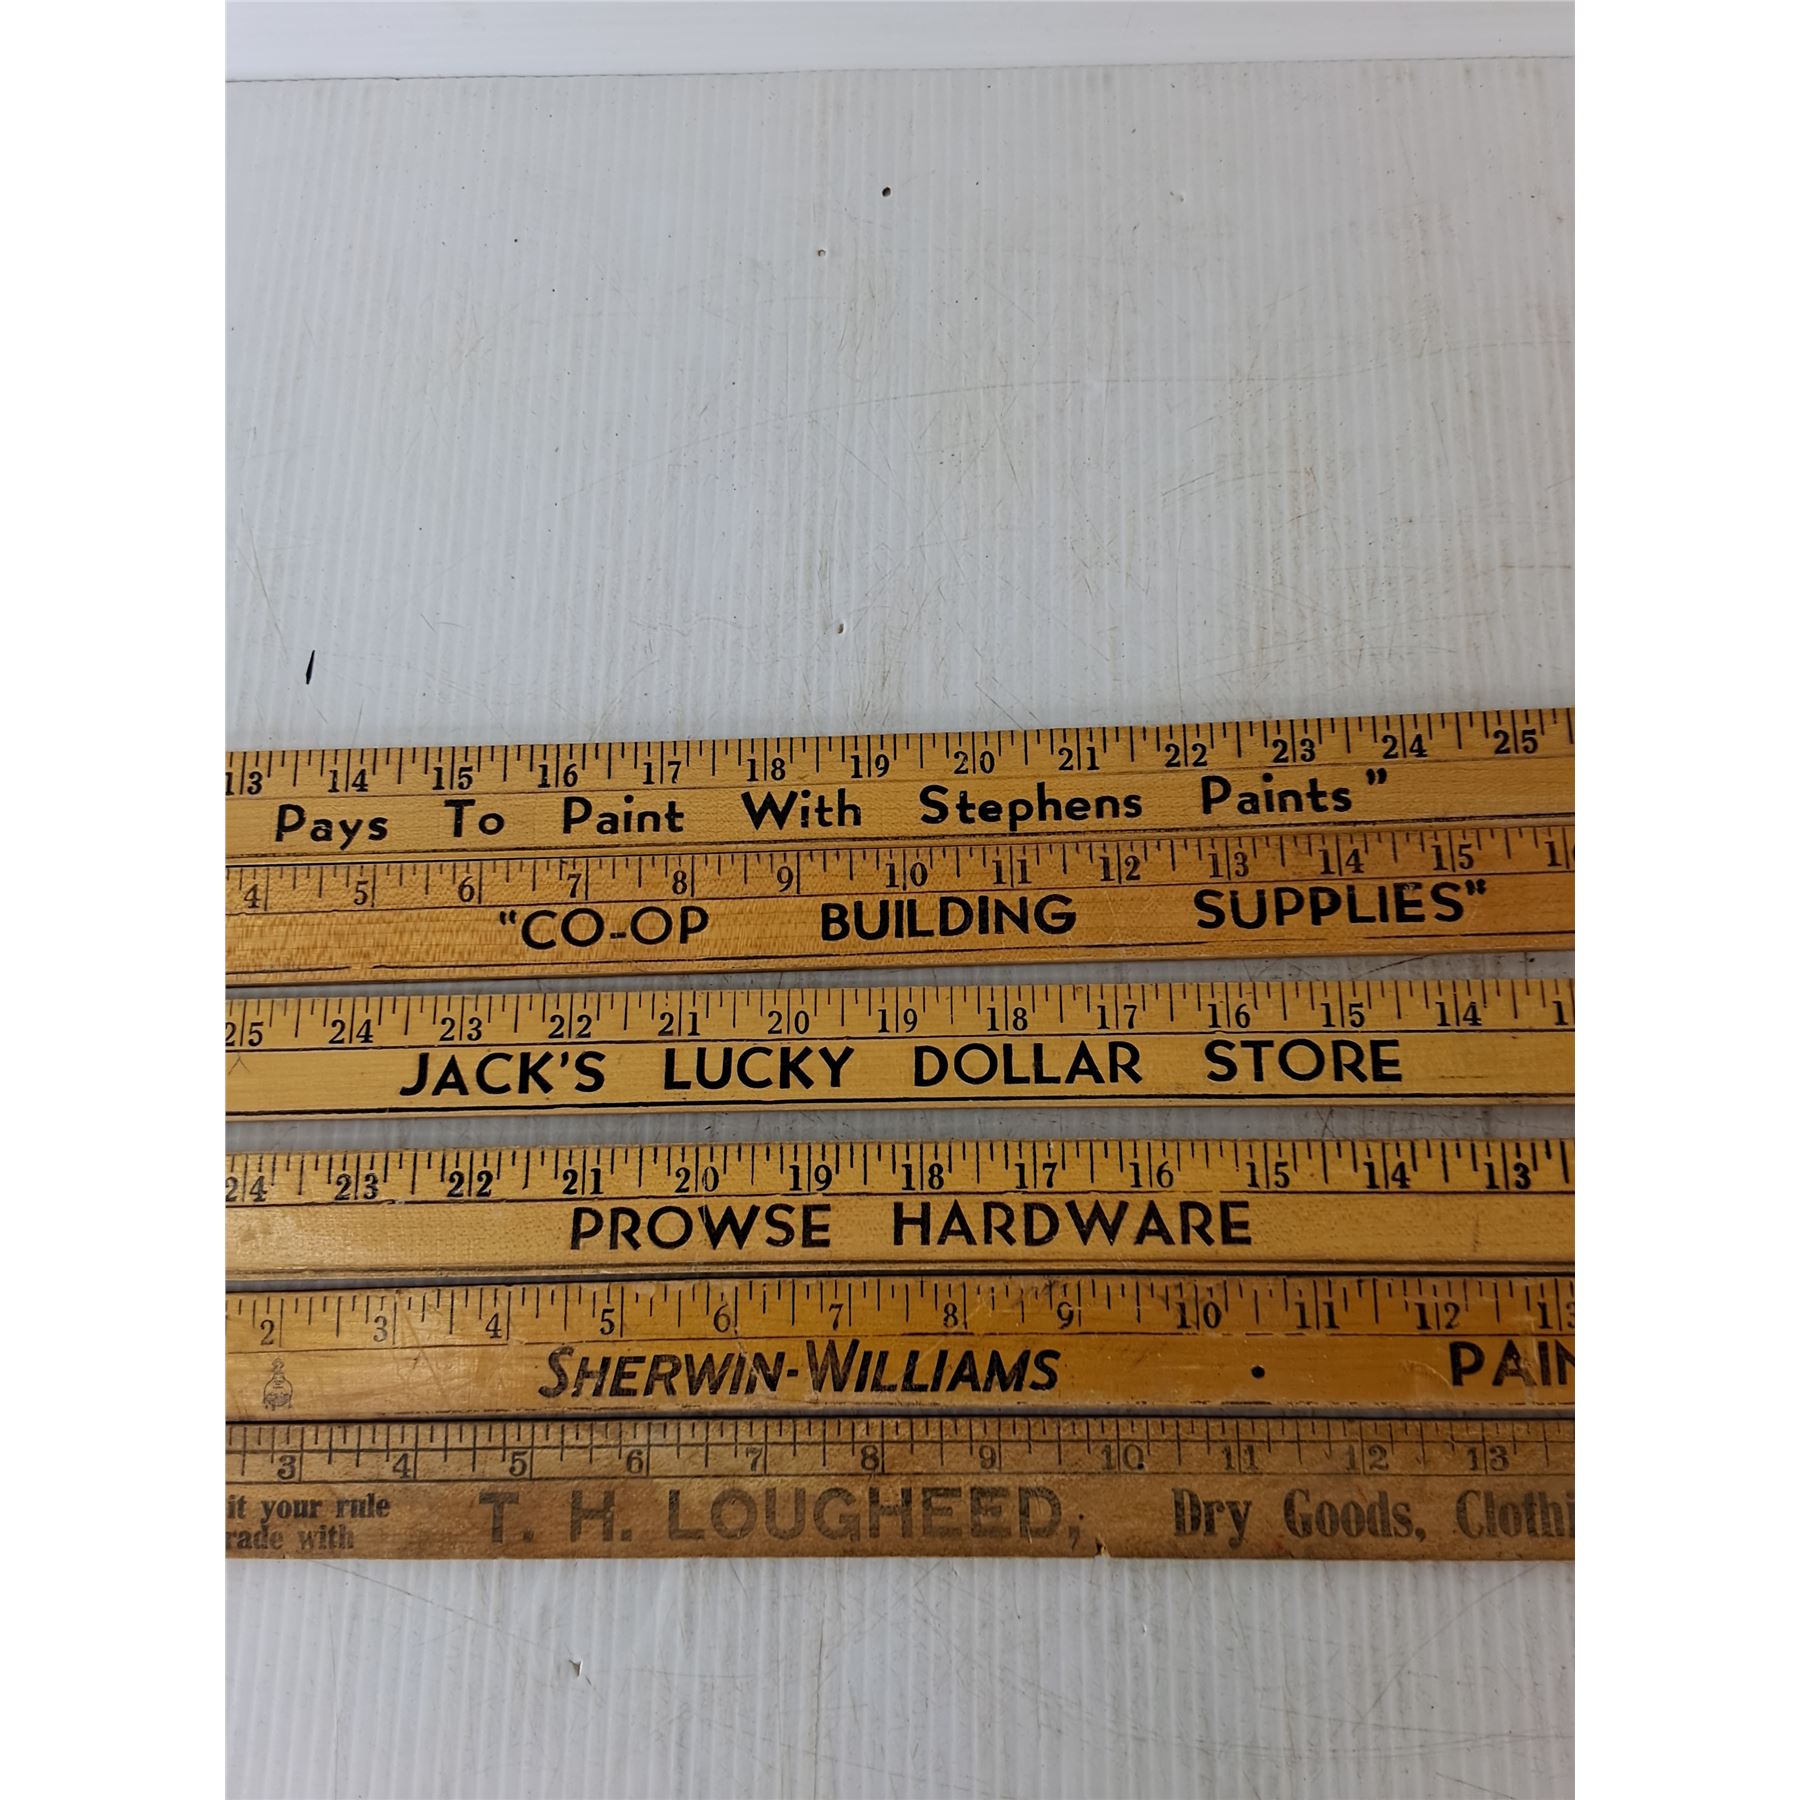 13 14 15 16 17 18 19 20 21 22 23 24 25
Pays To Paint With Stephens Paints"
4 5 6 7 8 9 10 11 12 13 14 15 16
"CO-OP BUILDING SUPPLIES"
25 24 23 22 21 20 19 18 17 16 15 14 1
JACK'S LUCKY DOLLAR STORE
24 23 22 21 20 19 18 17 16 15 14 13
PROWSE HARDWARE
2 3 4 5 6 7 8 9 10 11 12 13
SHERWIN-WILLIAMS • PAIN
3 4 5 6 7 8 9 10 11 12 13
it your rule T. H. LOUGHEED, Dry Goods, Clothi
rade with